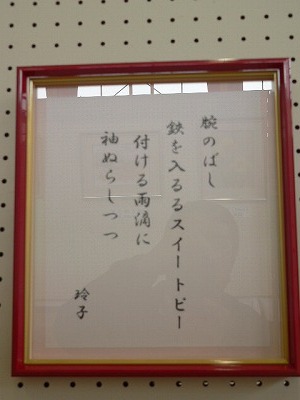 腕のばし
鋏を入るるスイートピー
付ける雨滴に
袖ぬらしつつ
玲子